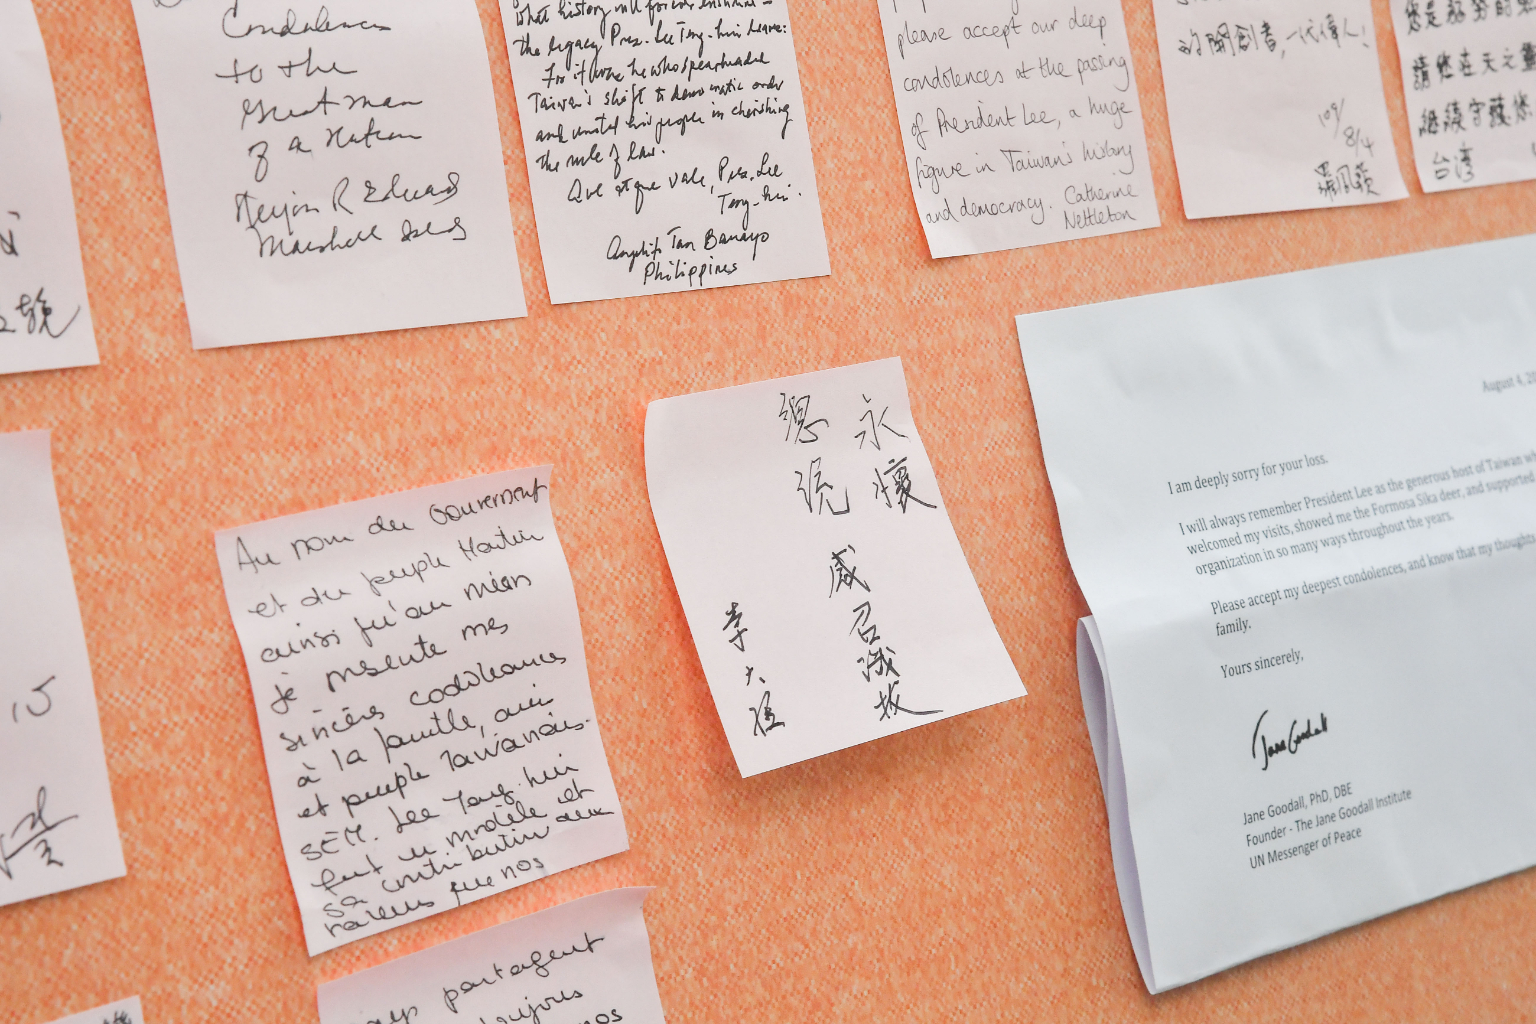 Condolences
to the
Great man
of a Nation
Marshall Islands
what history will forever enshrine
the legacy Pres. Lee Teng-hui leaves:
For it were he who spearheaded
Taiwan's shift to democratic order
and united his people in cherishing
the rule of law.
Ave atque vale, Pres. Lee
Teng-hui.
Angelito Tan Banayo
Philippines
please accept our deep
condolences at the passing
of President Lee, a huge
figure in Taiwan's history
and democracy. Catherine
Nettleton
的開創者,一代偉人!
109/
8/4
請您在天之靈
繼續守護您
台湾
永懷
總統
感召識拔
李大維
Au nom du Gouvernement
et du peuple Haïtien
ainsi qu'au mien
je présente mes
sincères condoléances
à la famille, ami
et peuple Taiwanais.
SEM. Lee Teng-hui
fut un modèle et
sa contribution aux
valeurs que nos
pays partagent
toujours
nos
August 4, 20
I am deeply sorry for your loss.
I will always remember President Lee as the generous host of Taiwan wh
welcomed my visits, showed me the Formosa Sika deer, and supported
organization in so many ways throughout the years.
Please accept my deepest condolences, and know that my thoughts
family.
Yours sincerely,
Jane Goodall
Jane Goodall, PhD, DBE
Founder - The Jane Goodall Institute
UN Messenger of Peace